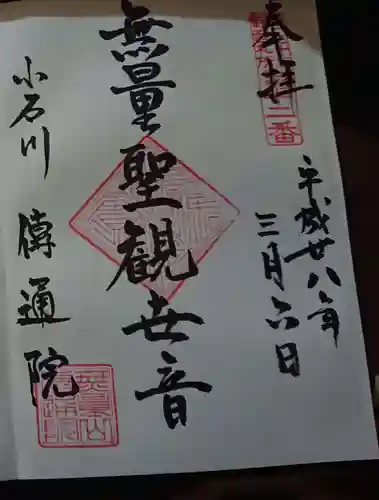 奉拝
二番
平成廿八年
三月六日
無量聖観世音
小石川 傳通院